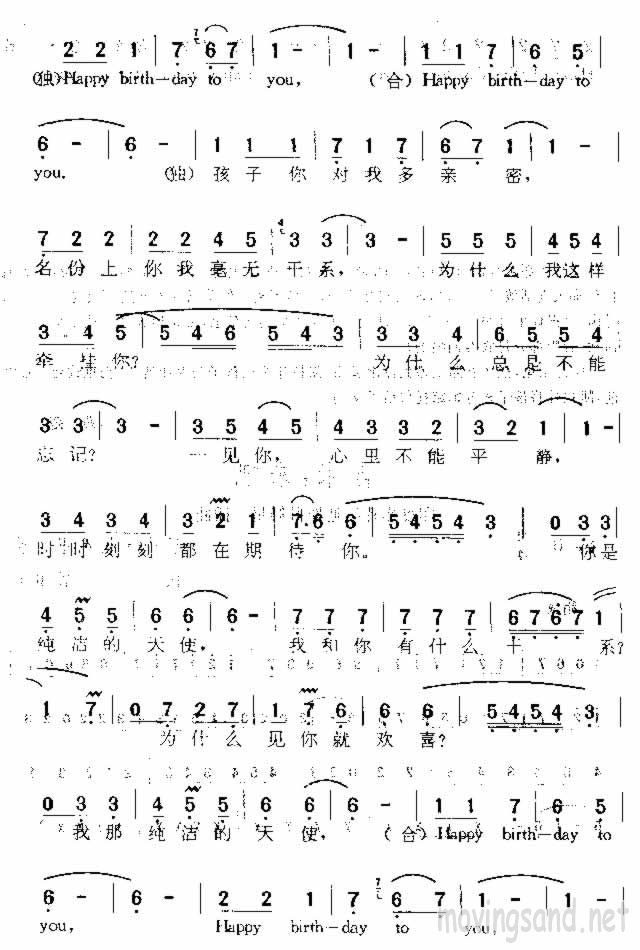 2 2 1 | 7 6 7 | 1 - | 1 - | 1 1 7 | 6 5 |
(独)Happy birth-day to you, (合)Happy birth-day to
6 - | 6 - | 1 1 1 | 7 1 7 | 6 7 1 | 1 - |
you. (独)孩子你对我多亲密,
7 2 2 | 2 2 4 5 | 3 3 | 3 - | 5 5 5 | 4 5 4 |
名份上你我毫无干系, 为什么我这样
3 4 5 | 5 4 6 | 5 4 3 | 3 3 4 | 6 5 5 4 |
牵挂你? 为什么总是不能
3 3 | 3 - | 3 5 4 5 | 4 3 3 2 | 3 2 1 | 1 - |
忘记? 一见你, 心里不能平静,
3 4 3 4 | 3 2 1 | 7. 6 6 | 5 4 5 4 3 | 0 3 3 |
时时刻刻都在期待你。 你是
4 5 5 | 6 6 | 6 - | 7 7 7 | 7 7 7 | 6 7 6 7 1 |
纯洁的天使, 我和你有什么干系?
1 7 | 0 7 2 7 | 1 7 6 | 6 6 | 5 4 5 4 3 |
为什么见你就欢喜?
0 3 3 | 4 5 5 | 6 6 | 6 - | 1 1 7 | 6 5 |
我那纯洁的天使, (合)Happy birth-day to
6 - | 6 - | 2 2 1 | 7 6 7 | 1 - | 1 - |
you, Happy birth-day to you,
movingsand.net